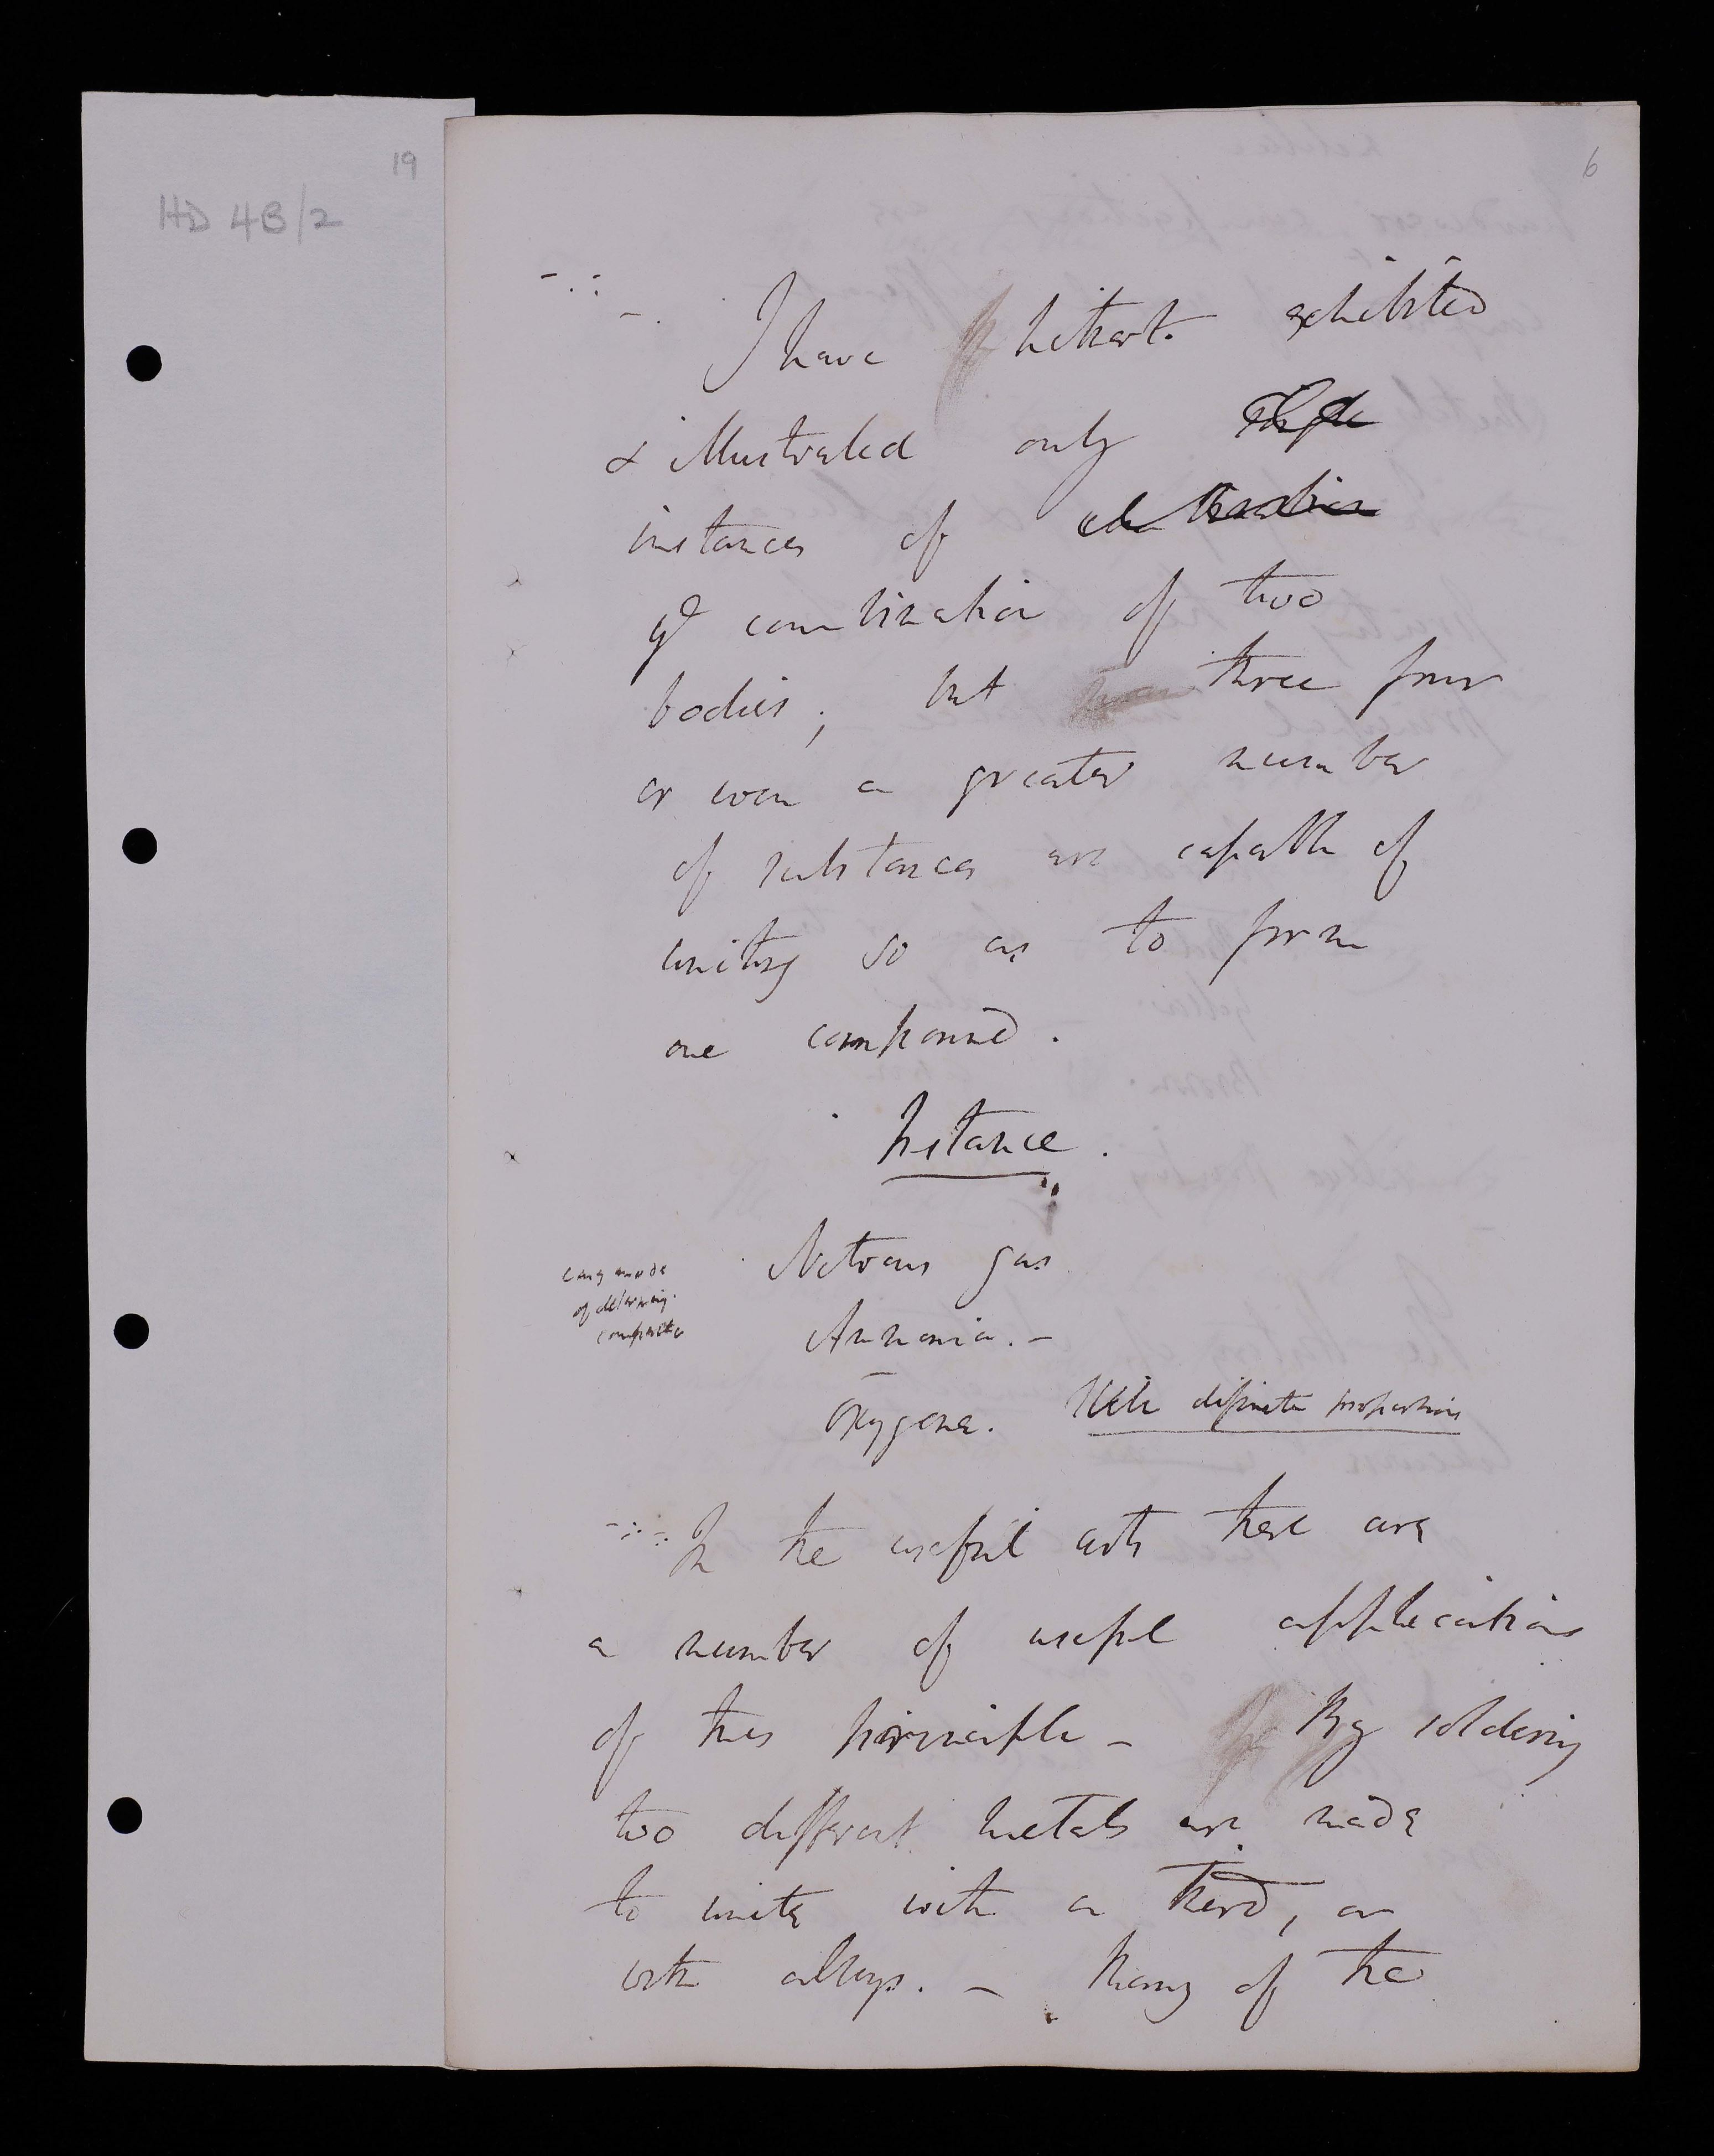 19
HD 4B/2
6
I have hitherto exhibited
& illustrated only
instances of
ye combination of two
bodies; but three four
or even a greater number
of substances are capable of
uniting so as to form
one compound.
Instance.
Nitrous gas
easy mode
of determing.
compositn
Ammonia. -
Oxygene. definite proportions
In the useful arts there are
a number of useful applications
of this principle - By soldering
two different metals are made
to unite with a third, or
with alloys. - Many of the